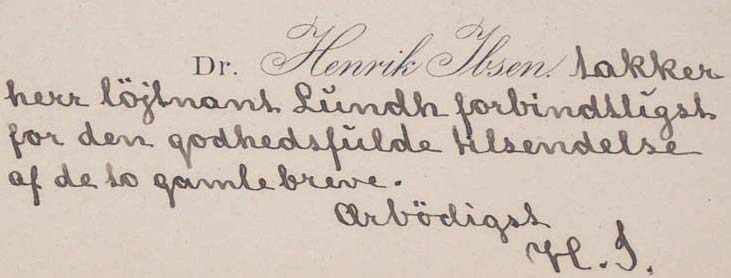 Dr. Henrik Ibsen. takker
herr löjtnant Lundh forbindtligst
for den godhedsfulde tilsendelse
af de to gamle breve.
Ærbödigst
H. I.